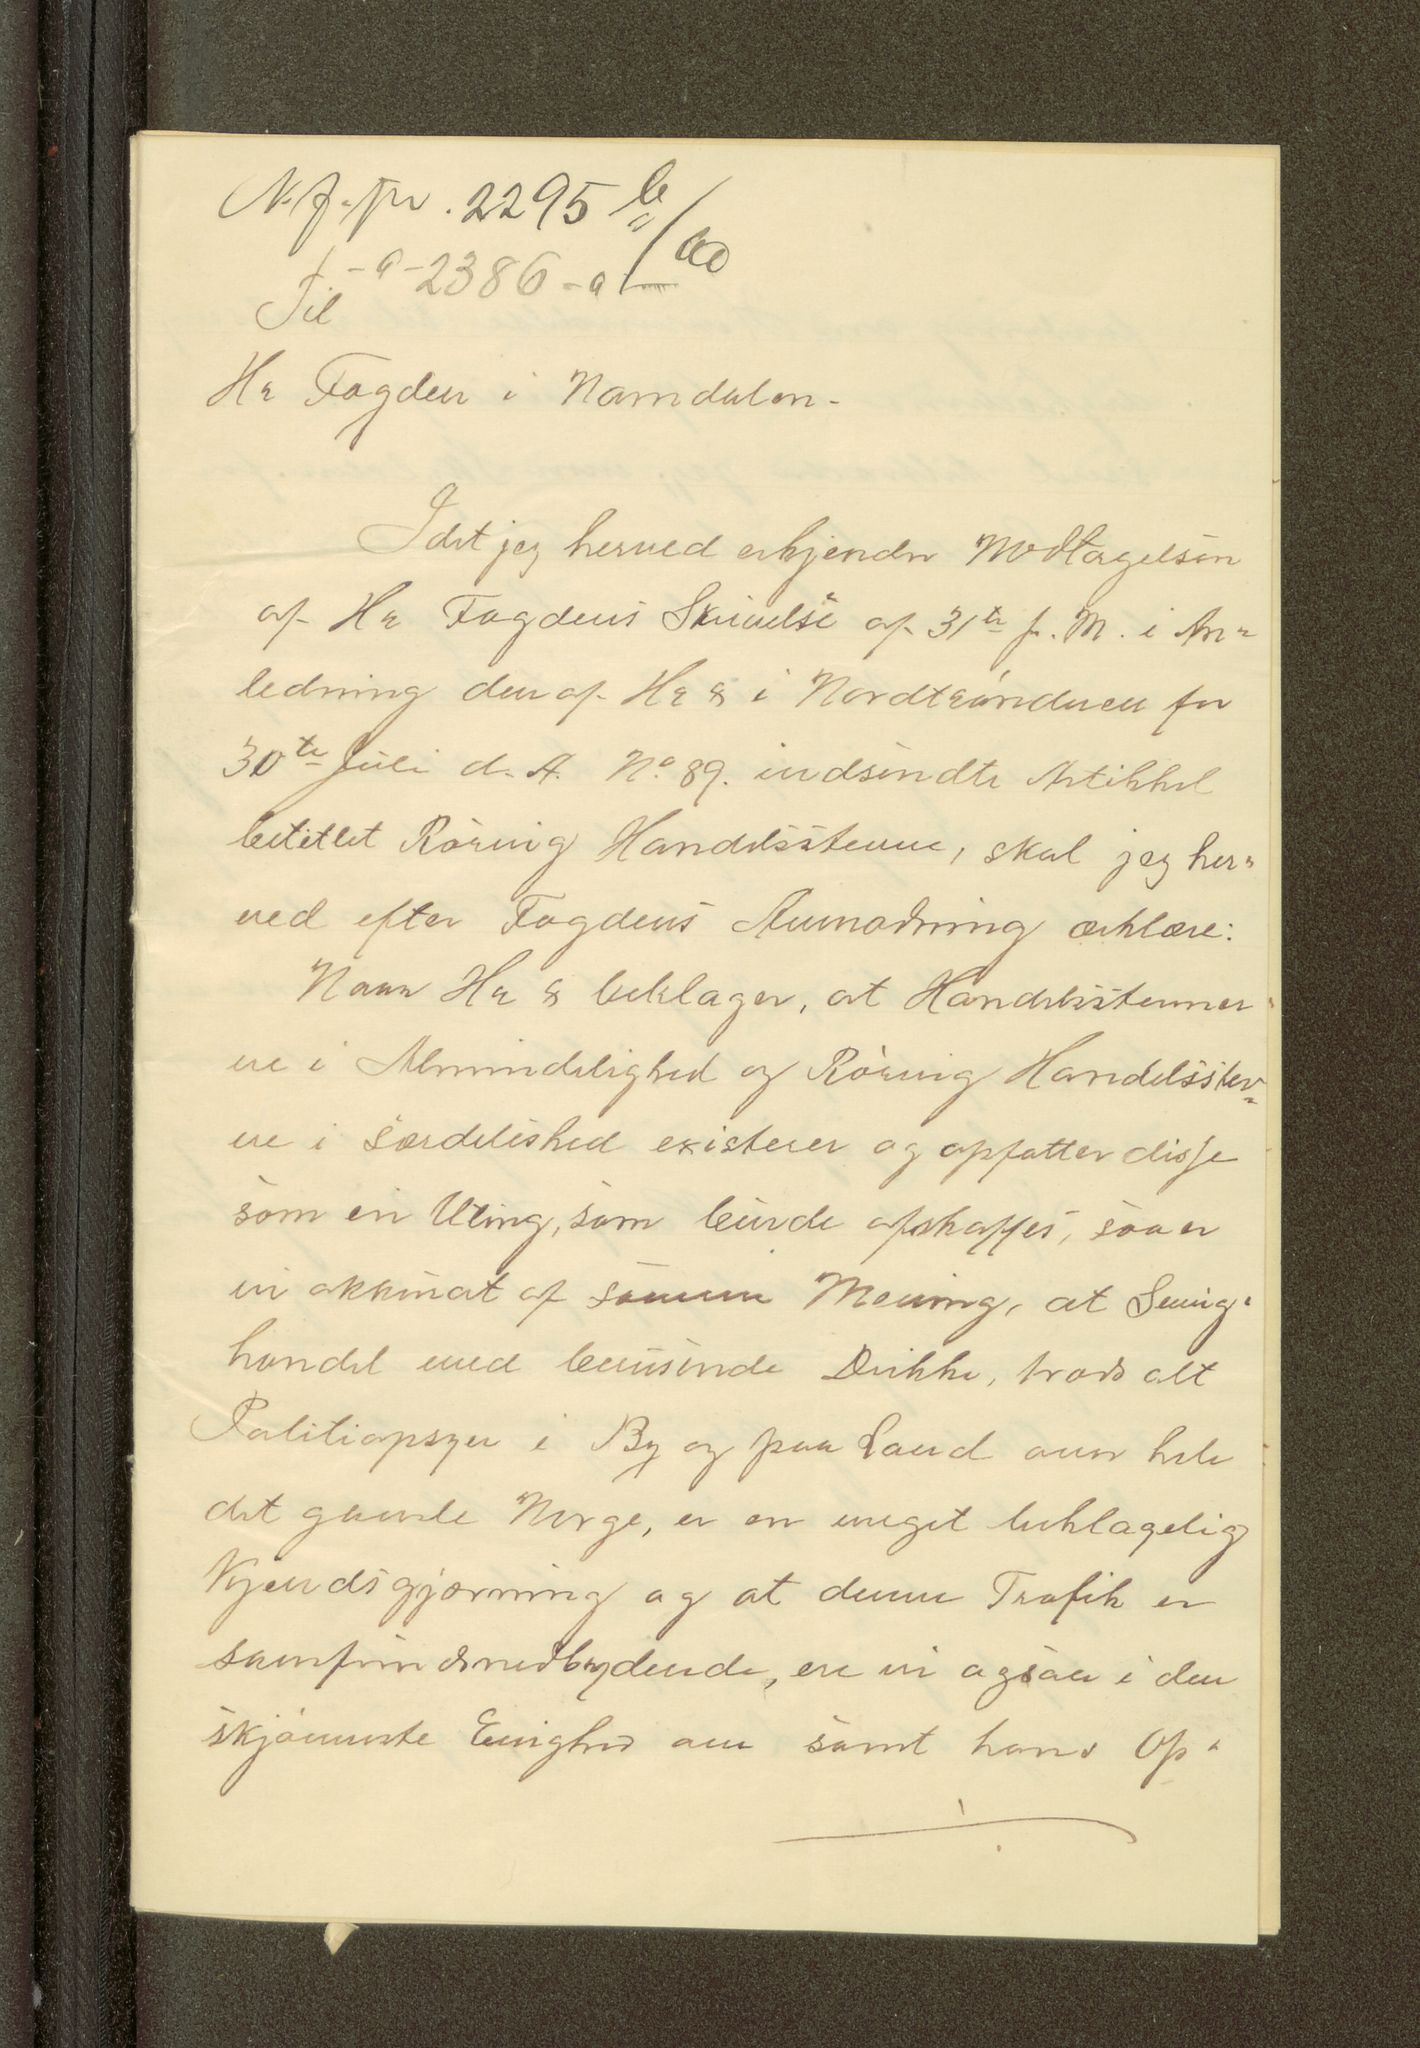 N. f. pr. 2295 b/00
- " - 2386 - a
Til
Hr Fogden i Namdalen.
Idet jeg herved erkjender Modtagelsen
af Hr Fogdens Skrivelse af 31te f. M. i An-
ledning den af Hr & i Nordtrønderen for
30te Juli d. A. No 89. indsendte Artikkel
betitlet Rørvig Handelsstevne, skal jeg her-
ved efter Fogdens Anmodning erklære:
Naar Hr & beklager, at Handelsstevner
ne i Almindelighed og Rørvig Handelsstev-
ne i Særdeleshed existerer og opfatter disse
som en Uting, som burde afskaffes, saa er
vi akkurat af samme Mening, at Smug-
handel med berusende Drikke, trods alt
Politiopsyn i By og paa Land over hele
det ganske Norge, er en meget beklagelig
Kjendsgjerning og at denne Trafik er
samfundsnedbrydende, ere vi ogsaa i den
skjønneste Enighed om samt hans Op-